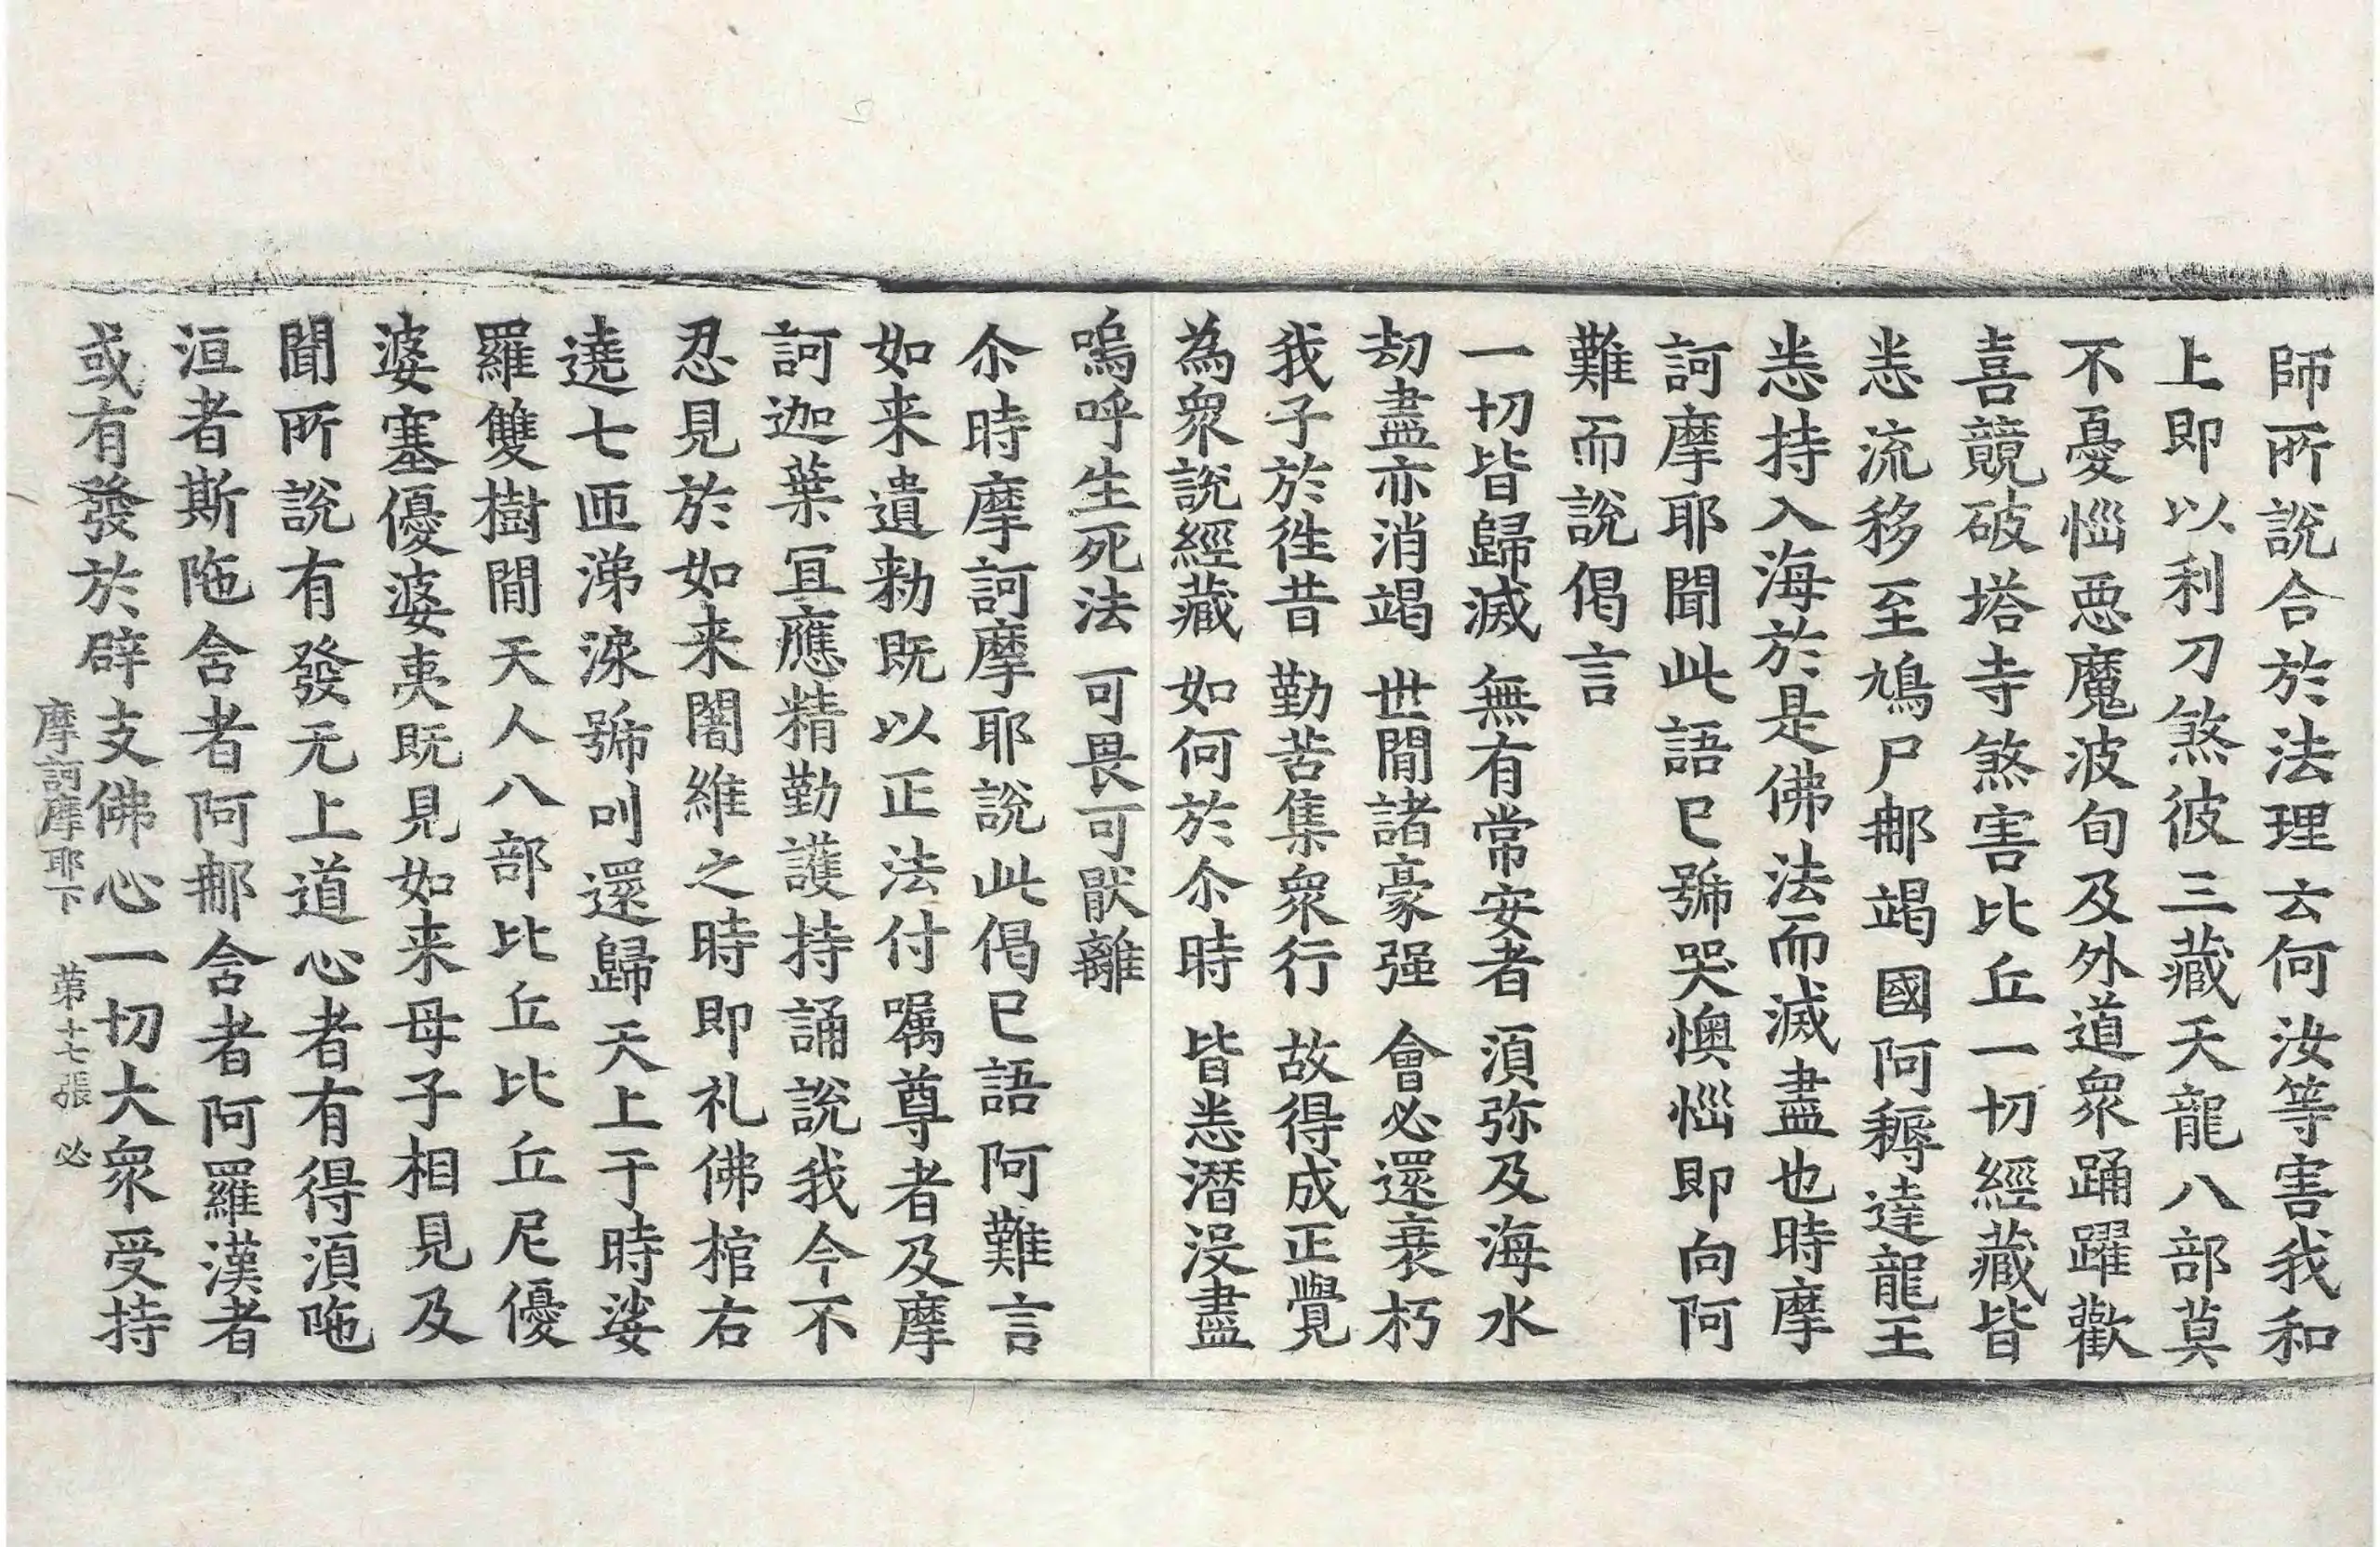 師所說合於法理云何汝等害我和
上即以利刀煞彼三藏天龍八部莫
不憂惱惡魔波旬及外道衆踊躍歡
喜競破塔寺煞害比丘一切經藏皆
悉流移至鳩尸那竭國阿耨達龍王
悉持入海於是佛法而滅盡也時摩
訶摩耶聞此語已號哭懊惱即向阿
難而說偈言
一切皆歸滅　無有常安者　須弥及海水
劫盡亦消竭　世間諸豪强　會必還衰朽
我子於往昔　勤苦集衆行　故得成正覺
為衆說經藏　如何於尒時　皆悉潛没盡
嗚呼生死法　可畏可猒離
尒時摩訶摩耶說此偈已語阿難言
如来遺勑既以正法付嘱尊者及摩
訶迦葉冝應精勤護持誦說我今不
忍見於如来闍維之時即礼佛棺右
遶七匝涕淚號叫還歸天上于時娑
羅雙樹間天人八部比丘比丘尼優
婆塞優婆夷既見如来母子相見及
聞所說有發无上道心者有得須陁
洹者斯陁含者阿那含者阿羅漢者
或有發於辟支佛心一切大衆受持
摩訶摩耶下　第十七張　必